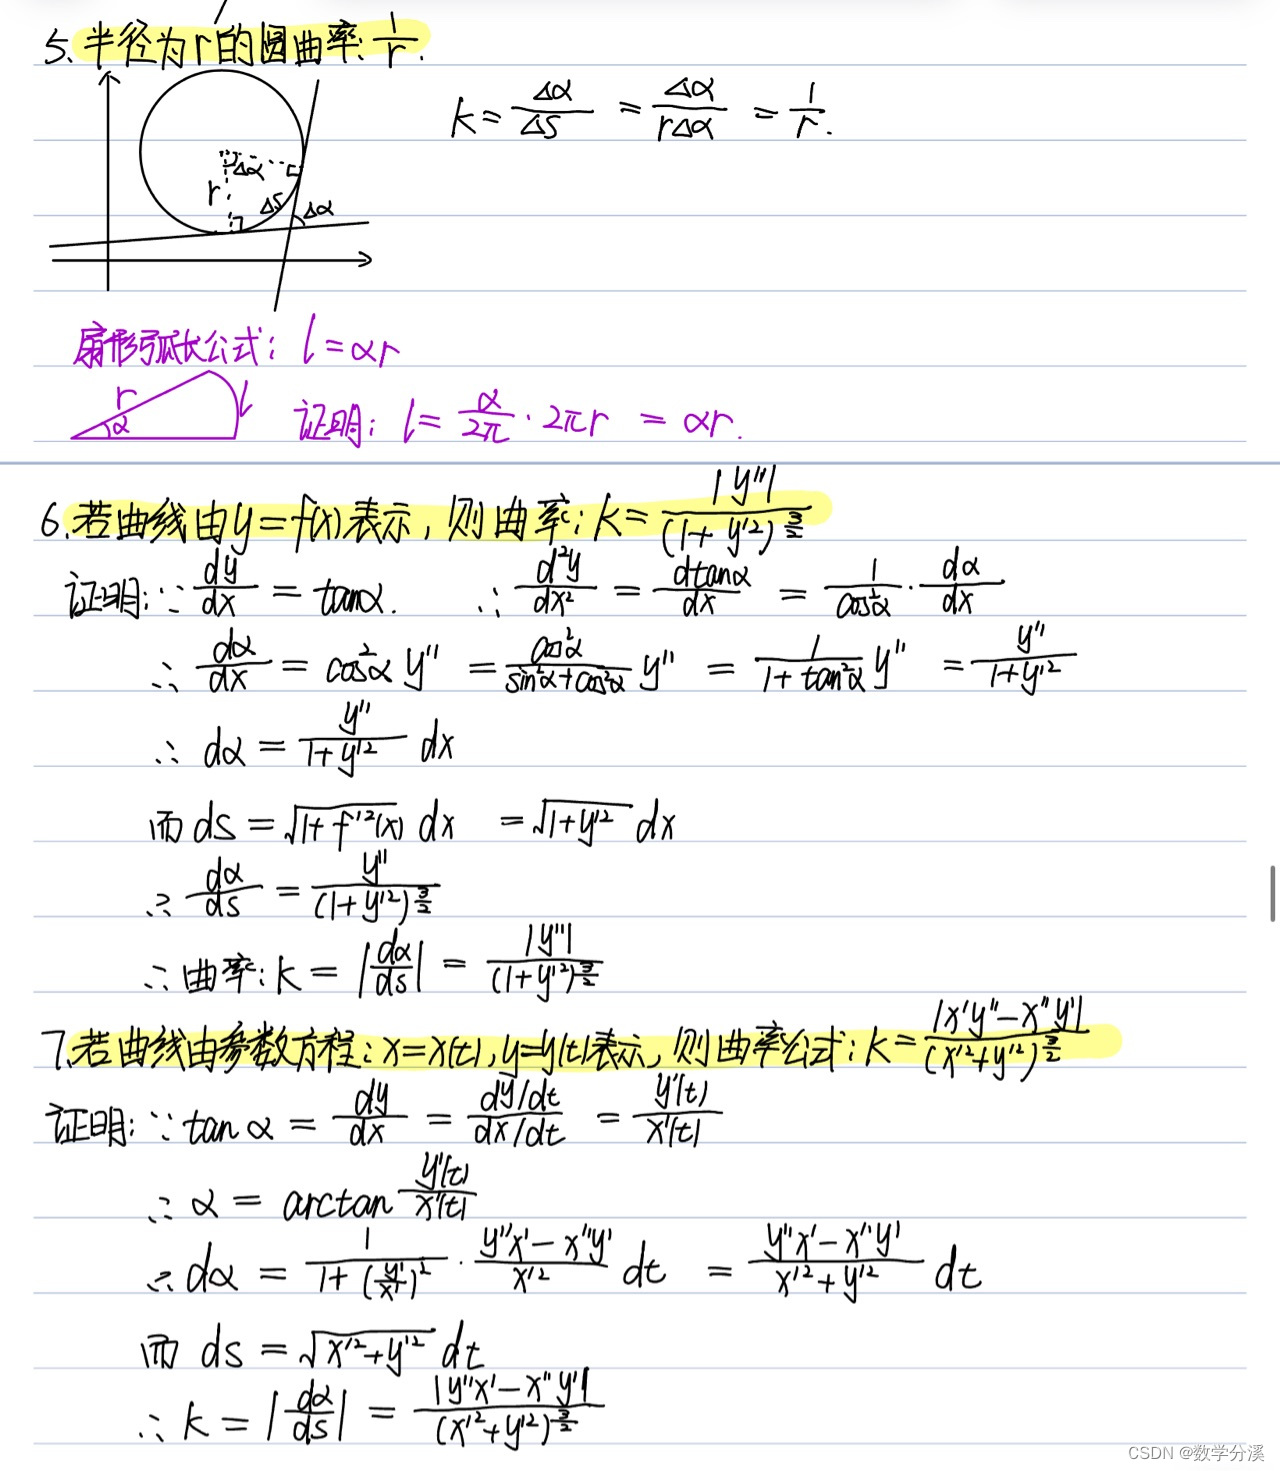 5. 半径为r的圆曲率: 1/r.
k = Δα/Δs = Δα/(rΔα) = 1/r.
Δα
r
Δs
Δα
扇形弧长公式: l = αr
r
α
l
证明: l = α/2π · 2πr = αr.
6. 若曲线由y=f(x)表示, 则曲率: k = |y''|/(1+y'²)^(3/2)
证明: ∵ dy/dx = tanα. ∴ d²y/dx² = dtanα/dx = 1/cos²α · dα/dx
∴ dα/dx = cos²α y'' = cos²α/(sin²α+cos²α) y'' = 1/(1+tan²α) y'' = y''/(1+y'²)
∴ dα = y''/(1+y'²) dx
而 ds = √(1+f'²(x)) dx = √(1+y'²) dx
∴ dα/ds = y''/(1+y'²)^(3/2)
∴ 曲率: k = |dα/ds| = |y''|/(1+y'²)^(3/2)
7. 若曲线由参数方程: x=x(t), y=y(t)表示, 则曲率公式: k = |x'y''-x''y'|/(x'²+y'²)^(3/2)
证明: ∵ tanα = dy/dx = (dy/dt)/(dx/dt) = y'(t)/x'(t)
∴ α = arctan y'(t)/x'(t)
∴ dα = 1/(1+(y'/x')²) · (y''x'-x''y')/x'² dt = (y''x'-x''y')/(x'²+y'²) dt
而 ds = √(x'²+y'²) dt
∴ k = |dα/ds| = |y''x'-x''y'|/(x'²+y'²)^(3/2)
CSDN @数学分溪